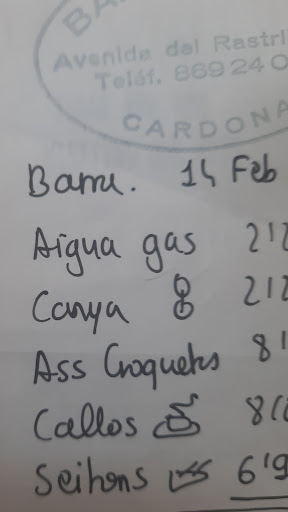 BA
Avenida del Rastri
Teléf. 869 24 0
CARDONA
Barra. 14 Feb
Aigua gas 2'2
Canya 8 2'2
Ass Croquetes 8'
Callos 8'
Seitons 6'9